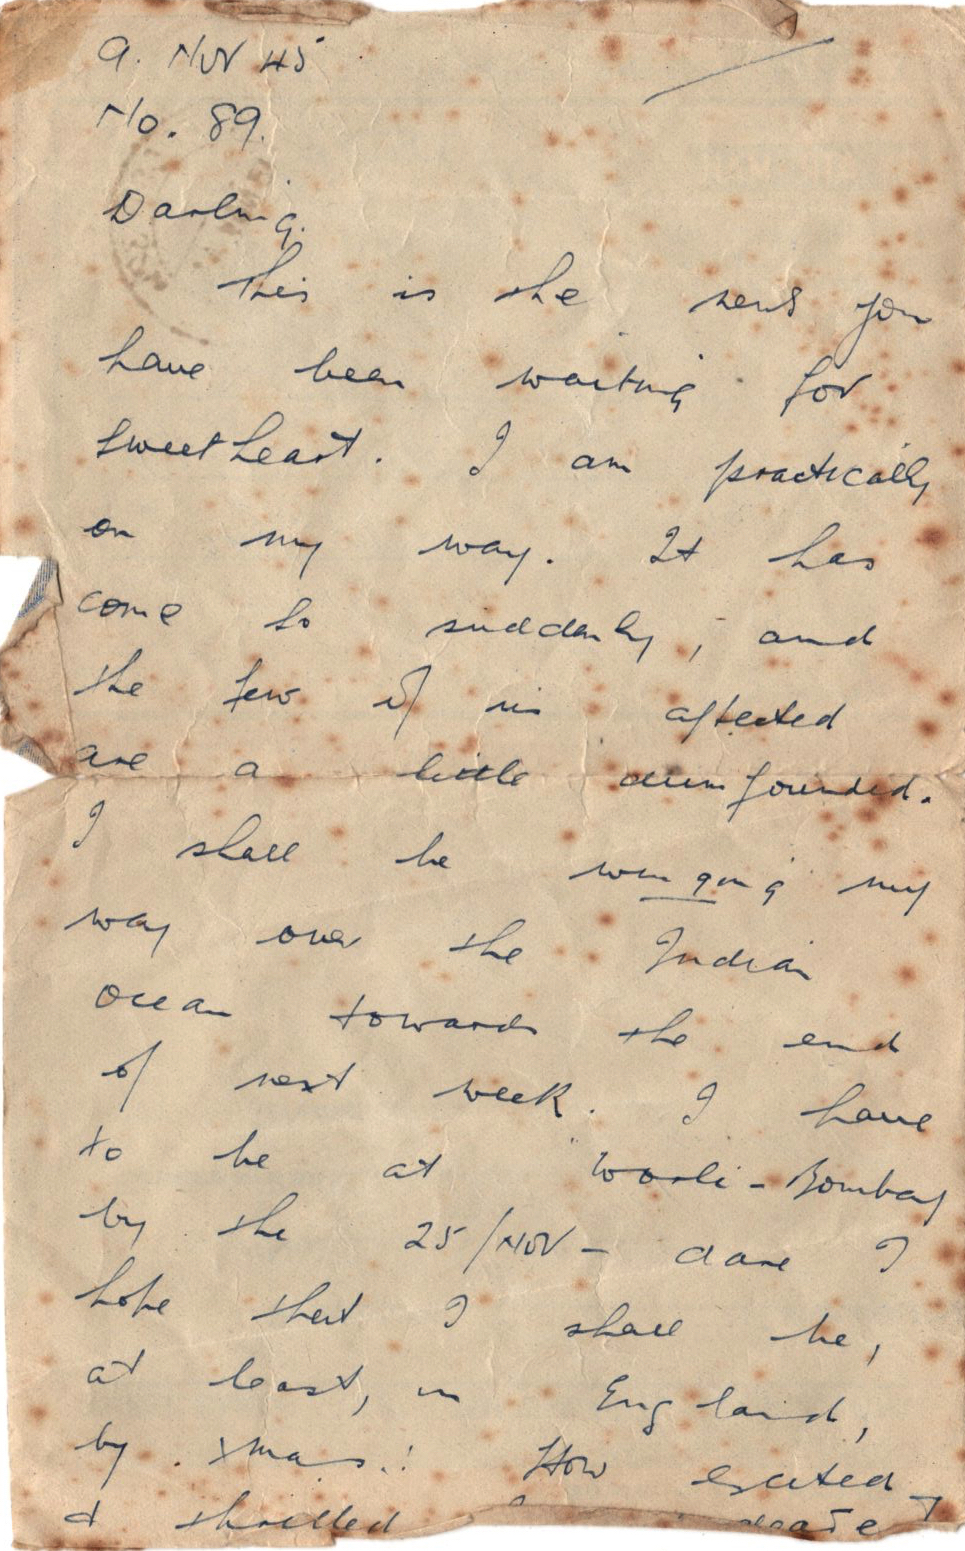 9. NOV 45
No. 89.
Darling.
This is the news you
have been waiting for
sweetheart. I am practically
on my way. It has
come so suddenly, and
the few of us affected
are a little dumfounded.
I shall be winging my
way over the Indian
Ocean towards the end
of next week. I have
to be at Worli - Bombay
by the 25/NOV - dare I
hope that I shall be,
at least, in England,
by Xmas! How excited
& thrilled